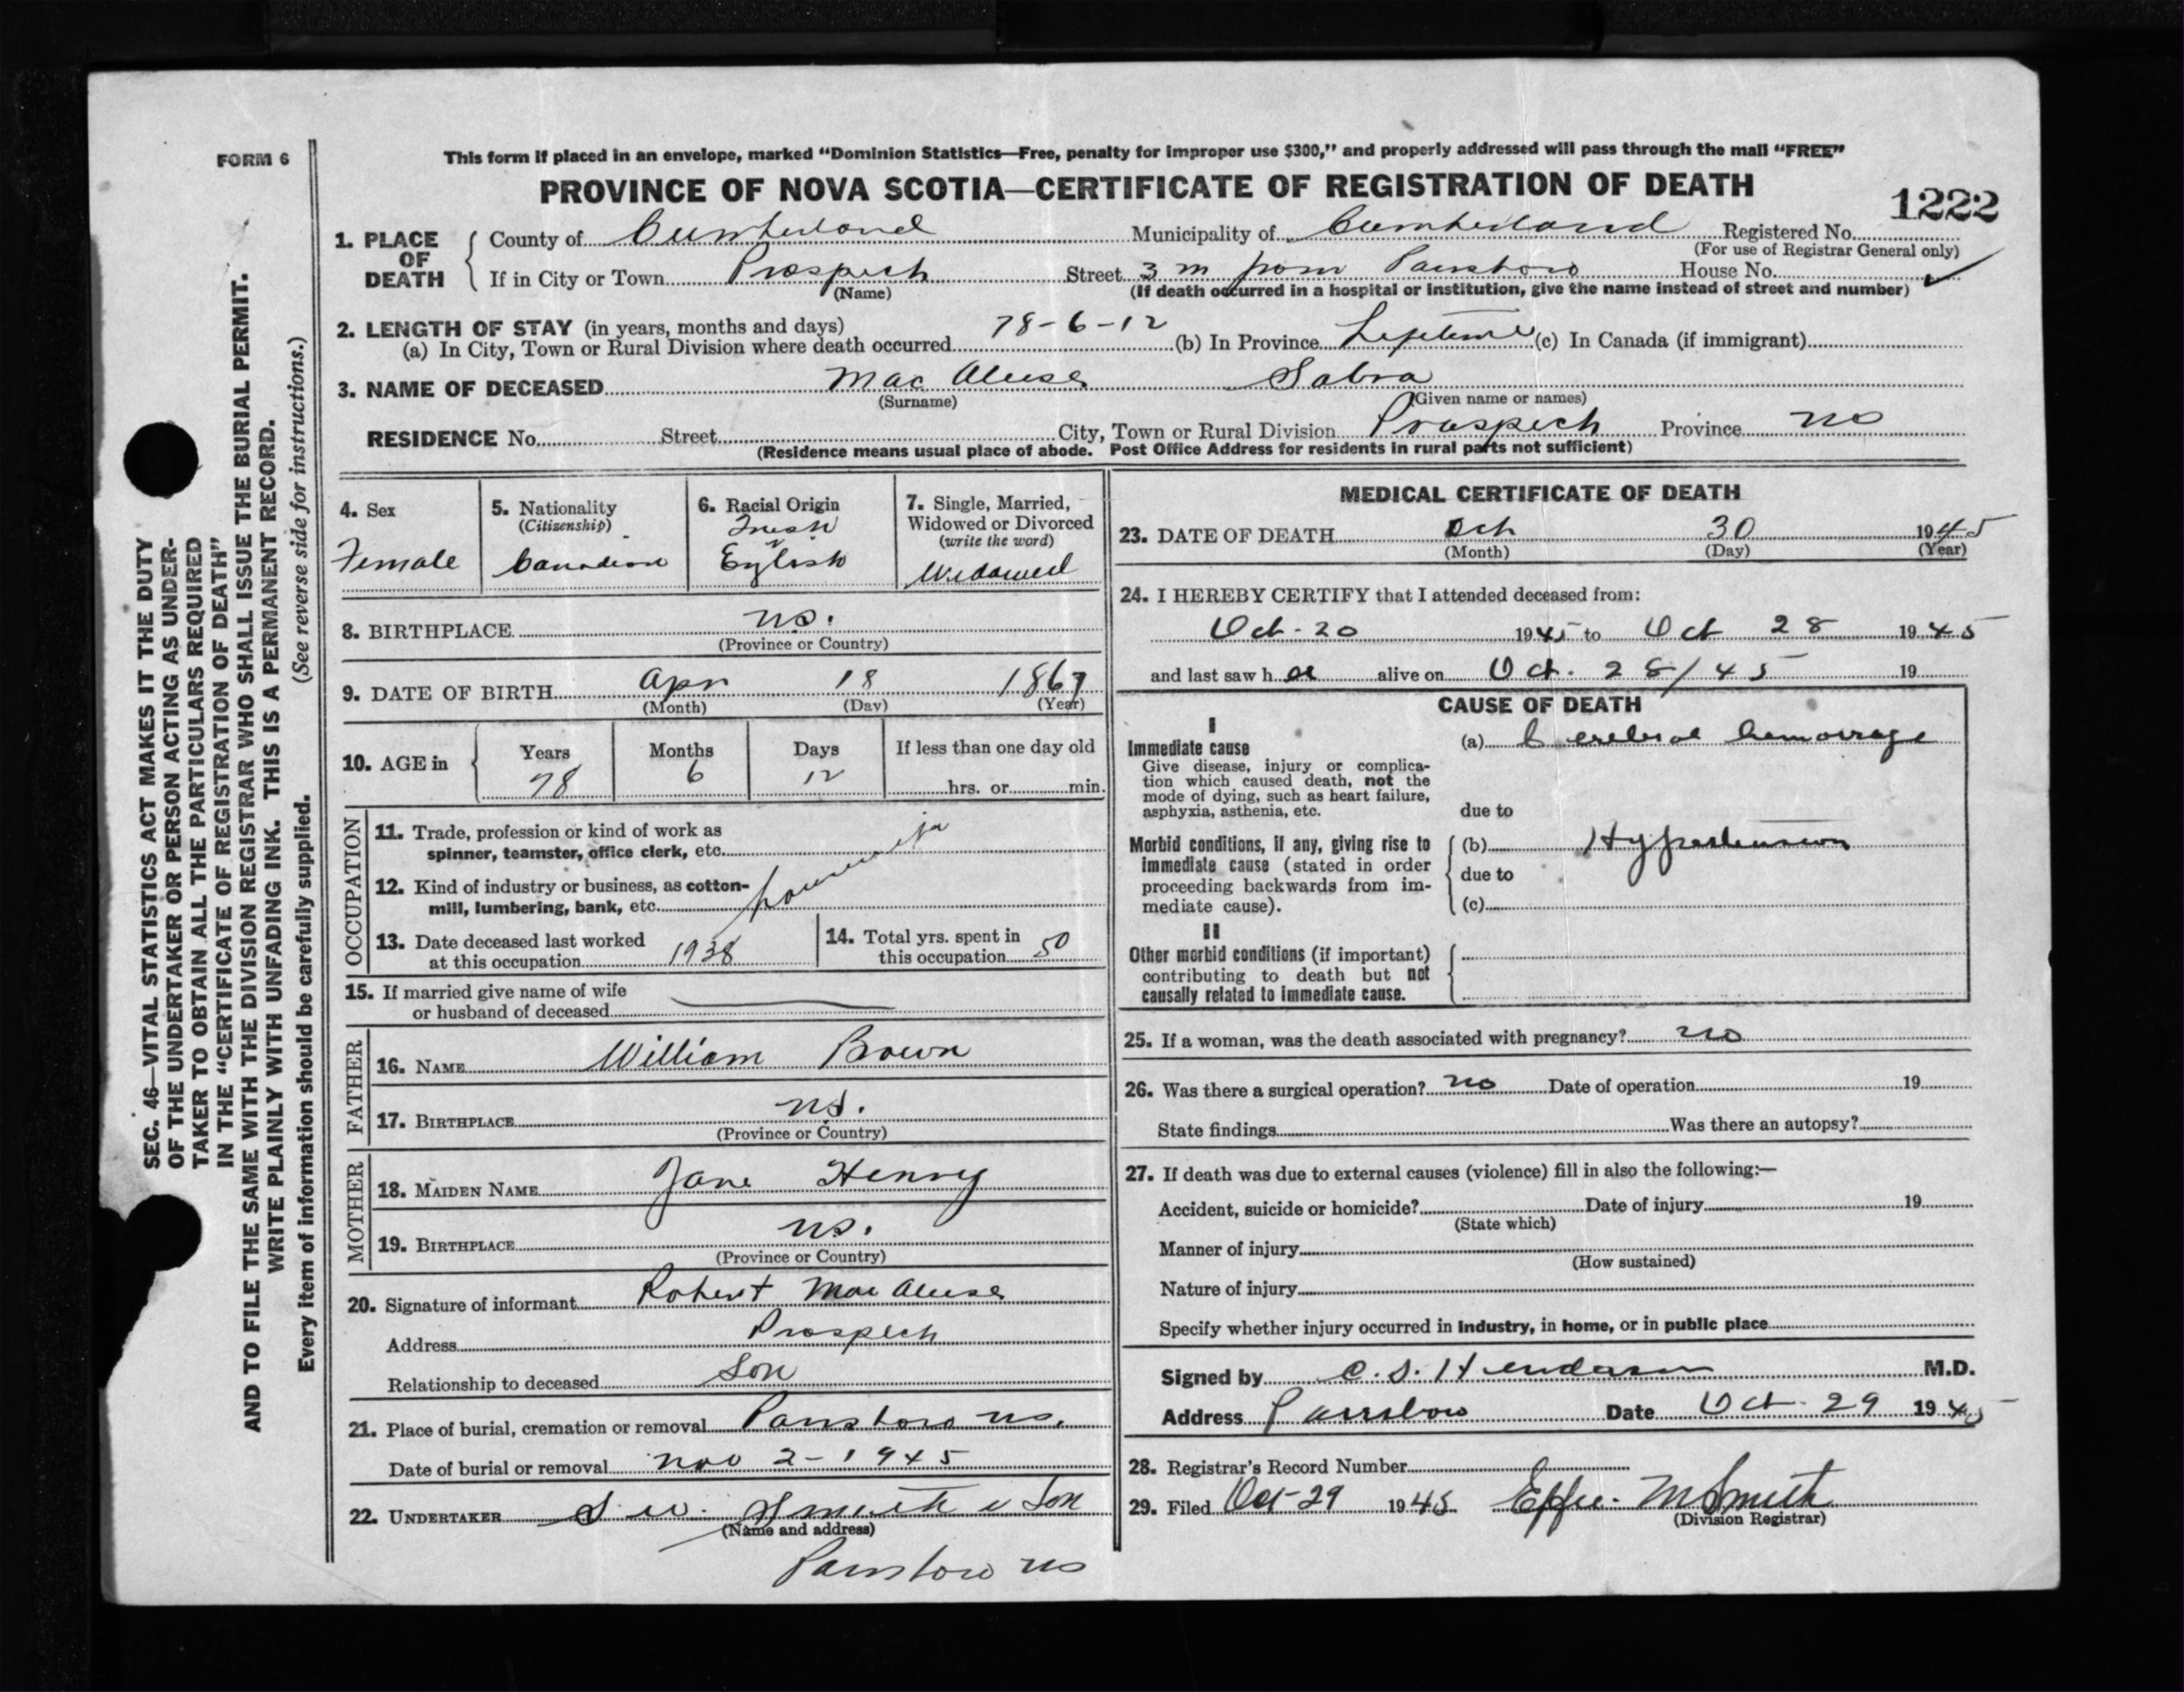 FORM 6
This form if placed in an envelope, marked “Dominion Statistics—Free, penalty for improper use $300,” and properly addressed will pass through the mail “FREE”
PROVINCE OF NOVA SCOTIA—CERTIFICATE OF REGISTRATION OF DEATH
1222
1. PLACE OF DEATH
County of Cumberland Municipality of Cumberland Registered No.
(For use of Registrar General only)
If in City or Town Prospect Street 3 m from Parrsboro House No. ✓
(Name) (If death occurred in a hospital or institution, give the name instead of street and number)
2. LENGTH OF STAY (in years, months and days)
(a) In City, Town or Rural Division where death occurred 78-6-12 (b) In Province Lifetime (c) In Canada (if immigrant)
3. NAME OF DECEASED Mac Aleese Sabra
(Surname) (Given name or names)
RESIDENCE No. Street City, Town or Rural Division Prospect Province ns
(Residence means usual place of abode. Post Office Address for residents in rural parts not sufficient)
4. Sex
Female
5. Nationality
(Citizenship)
Canadian
6. Racial Origin
Irish
English
7. Single, Married,
Widowed or Divorced
(write the word)
Widowed
8. BIRTHPLACE ns.
(Province or Country)
9. DATE OF BIRTH Apr 18 1867
(Month) (Day) (Year)
10. AGE in
Years Months Days If less than one day old
78 6 12 hrs. or min.
OCCUPATION
11. Trade, profession or kind of work as
spinner, teamster, office clerk, etc.
12. Kind of industry or business, as cotton-
mill, lumbering, bank, etc. housewife
13. Date deceased last worked
at this occupation 1938
14. Total yrs. spent in
this occupation 50
15. If married give name of wife
or husband of deceased
FATHER
16. NAME William Brown
17. BIRTHPLACE ns.
(Province or Country)
MOTHER
18. MAIDEN NAME Jane Henry
19. BIRTHPLACE ns.
(Province or Country)
20. Signature of informant Robert Mac Aleese
Address Prospect
Relationship to deceased Son
21. Place of burial, cremation or removal Parrsboro ns.
Date of burial or removal nov 2-1945
22. UNDERTAKER S W. Smith & Son
(Name and address)
Parrsboro ns
MEDICAL CERTIFICATE OF DEATH
23. DATE OF DEATH Oct 30 1945
(Month) (Day) (Year)
24. I HEREBY CERTIFY that I attended deceased from:
Oct-20 1945 to Oct 28 1945
and last saw h er alive on Oct. 28/45 19
CAUSE OF DEATH
I
Immediate cause
Give disease, injury or complica-
tion which caused death, not the
mode of dying, such as heart failure,
asphyxia, asthenia, etc.
(a) Cerebral hemorrage
due to
Morbid conditions, if any, giving rise to
immediate cause (stated in order
proceeding backwards from im-
mediate cause).
(b) Hypertension
due to
(c)
II
Other morbid conditions (if important)
contributing to death but not
causally related to immediate cause.
25. If a woman, was the death associated with pregnancy? no
26. Was there a surgical operation? no Date of operation 19
State findings Was there an autopsy?
27. If death was due to external causes (violence) fill in also the following:—
Accident, suicide or homicide? Date of injury 19
(State which)
Manner of injury
(How sustained)
Nature of injury
Specify whether injury occurred in industry, in home, or in public place
Signed by C. S. Henderson M.D.
Address Parrsboro Date Oct 29 1945
28. Registrar's Record Number
29. Filed Oct-29 1945 Effie. M Smith
(Division Registrar)
SEC. 46—VITAL STATISTICS ACT MAKES IT THE DUTY
OF THE UNDERTAKER OR PERSON ACTING AS UNDER-
TAKER TO OBTAIN ALL THE PARTICULARS REQUIRED
IN THE “CERTIFICATE OF REGISTRATION OF DEATH”
AND TO FILE THE SAME WITH THE DIVISION REGISTRAR WHO SHALL ISSUE THE BURIAL PERMIT.
WRITE PLAINLY WITH UNFADING INK. THIS IS A PERMANENT RECORD.
Every item of information should be carefully supplied. (See reverse side for instructions.)